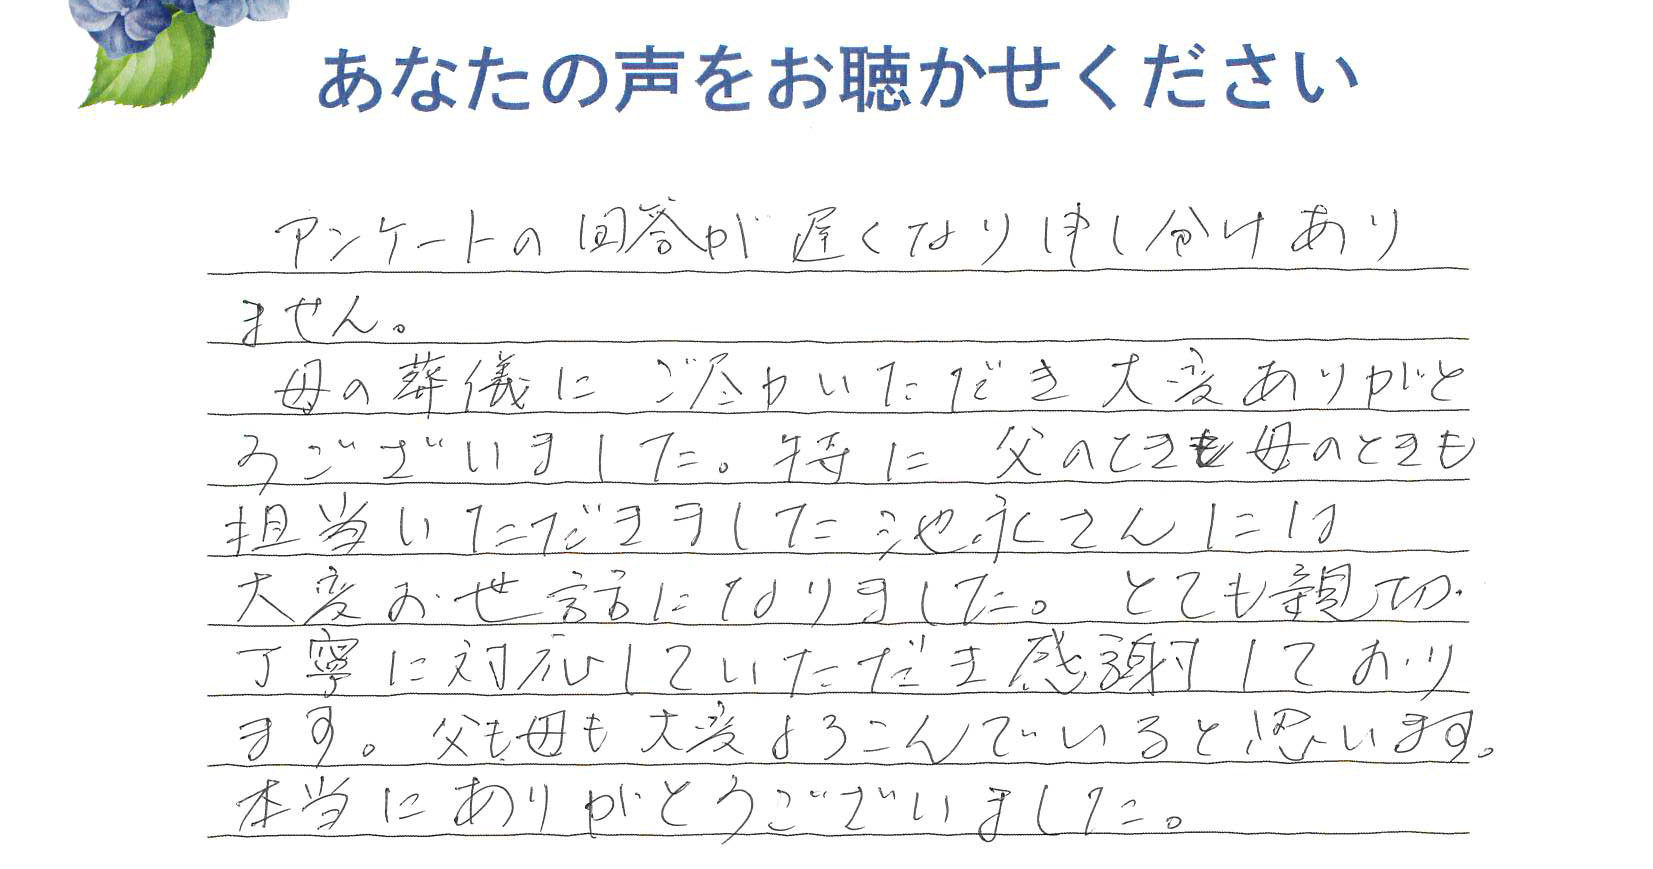 あなたの声をお聴かせください
アンケートの回答が遅くなり申し分けあり
ません。
母の葬儀にご尽力いただき大変ありがと
うございました。特に父のときも母のときも
担当いただきました池永さんには
大変お世話になりました。とても親切・
丁寧に対応していただき感謝しており
ます。父も母も大変よろこんでいると思います。
本当にありがとうございました。